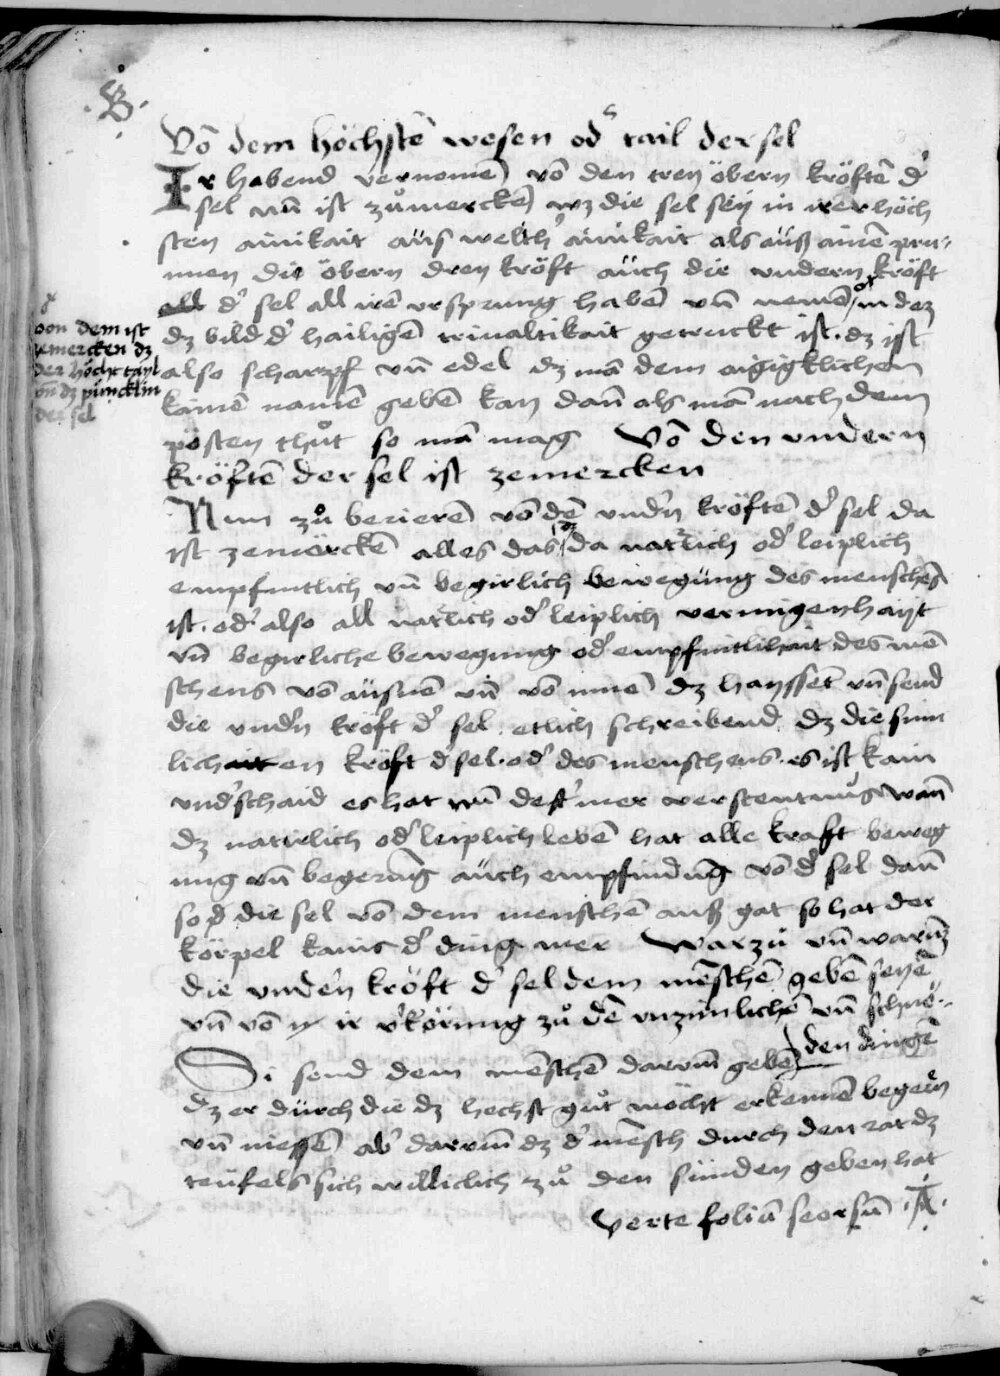 .B.
Võ dem höchstẽ wesen od' tail der sel
Ir habend vernomẽ võ den treÿ öbern kröftẽ d'
sel nũ ist zů mercken wz die sel seÿ in irer höch
sten ainikait aüs welch' ainikait als aüß ainẽ prũ-
nnen die öbern dreÿ kröft aüch die vndern kröft
all d' sel all irẽ vrsprung habẽ vñ nemẽ in dez
dz bild d' hailigẽ triualtikait getruckt ist. dz ist
also scharpf vñ edel dz mã dem aigigklichen
kainẽ namẽ gebẽ kan dañ als mã nach dem
pösten thůt so mã mag Võ den vndern
kröftẽ der sel ist zemercken
von dem ist
zemercken dz
der höchst tayl
vñ dz püncklin
der sel
Nun zů berierẽ võ dẽ vnd'n kröftẽ d' sel da
ist zemörckẽ alles das da natirlich od' leiplich
empfintlich vñ begirlich bewegüng des menschẽs
ist. od' also all natirlich od' leiplich vermigenhaÿt
vñ begirliche bewegung od' empfintlikait des mẽ
schens võ aüsnẽ vñ võ innẽ dz haÿssẽt vñ send
die vnd'n kröft d' sel. etlich schreibend dz die sinn
lichaiten kröft d' sel. od' des menschens. es ist kain
vnd'schaid es hat nũ dest' mer verstentnůs wañ
dz natirlich od' leiplich lebẽ hat alle kraft beweg
ung vñ begerũg aüch empfindũg võ d' sel dañ
so die sel võ dem menschẽ auß gat so hat der
körpel kains d' ding mer Warzů vñ warũz
die vnd'n kröft d' sel dem mẽschẽ gebẽ seÿẽ
vñ võ ir v'körung zů dẽ vnzimlichẽ vñ schnö-
den dingẽ
Si send dem mẽschẽ darum̃ gebẽ
dz er dürch die dz hechst gůt möcht erkennẽ begern
vñ niessẽ ab' darrum̃ dz d' mẽsch durch den rat dz
teüfels sich williclich zů den sünden geben hat
verte foliũ seorsũ .A.